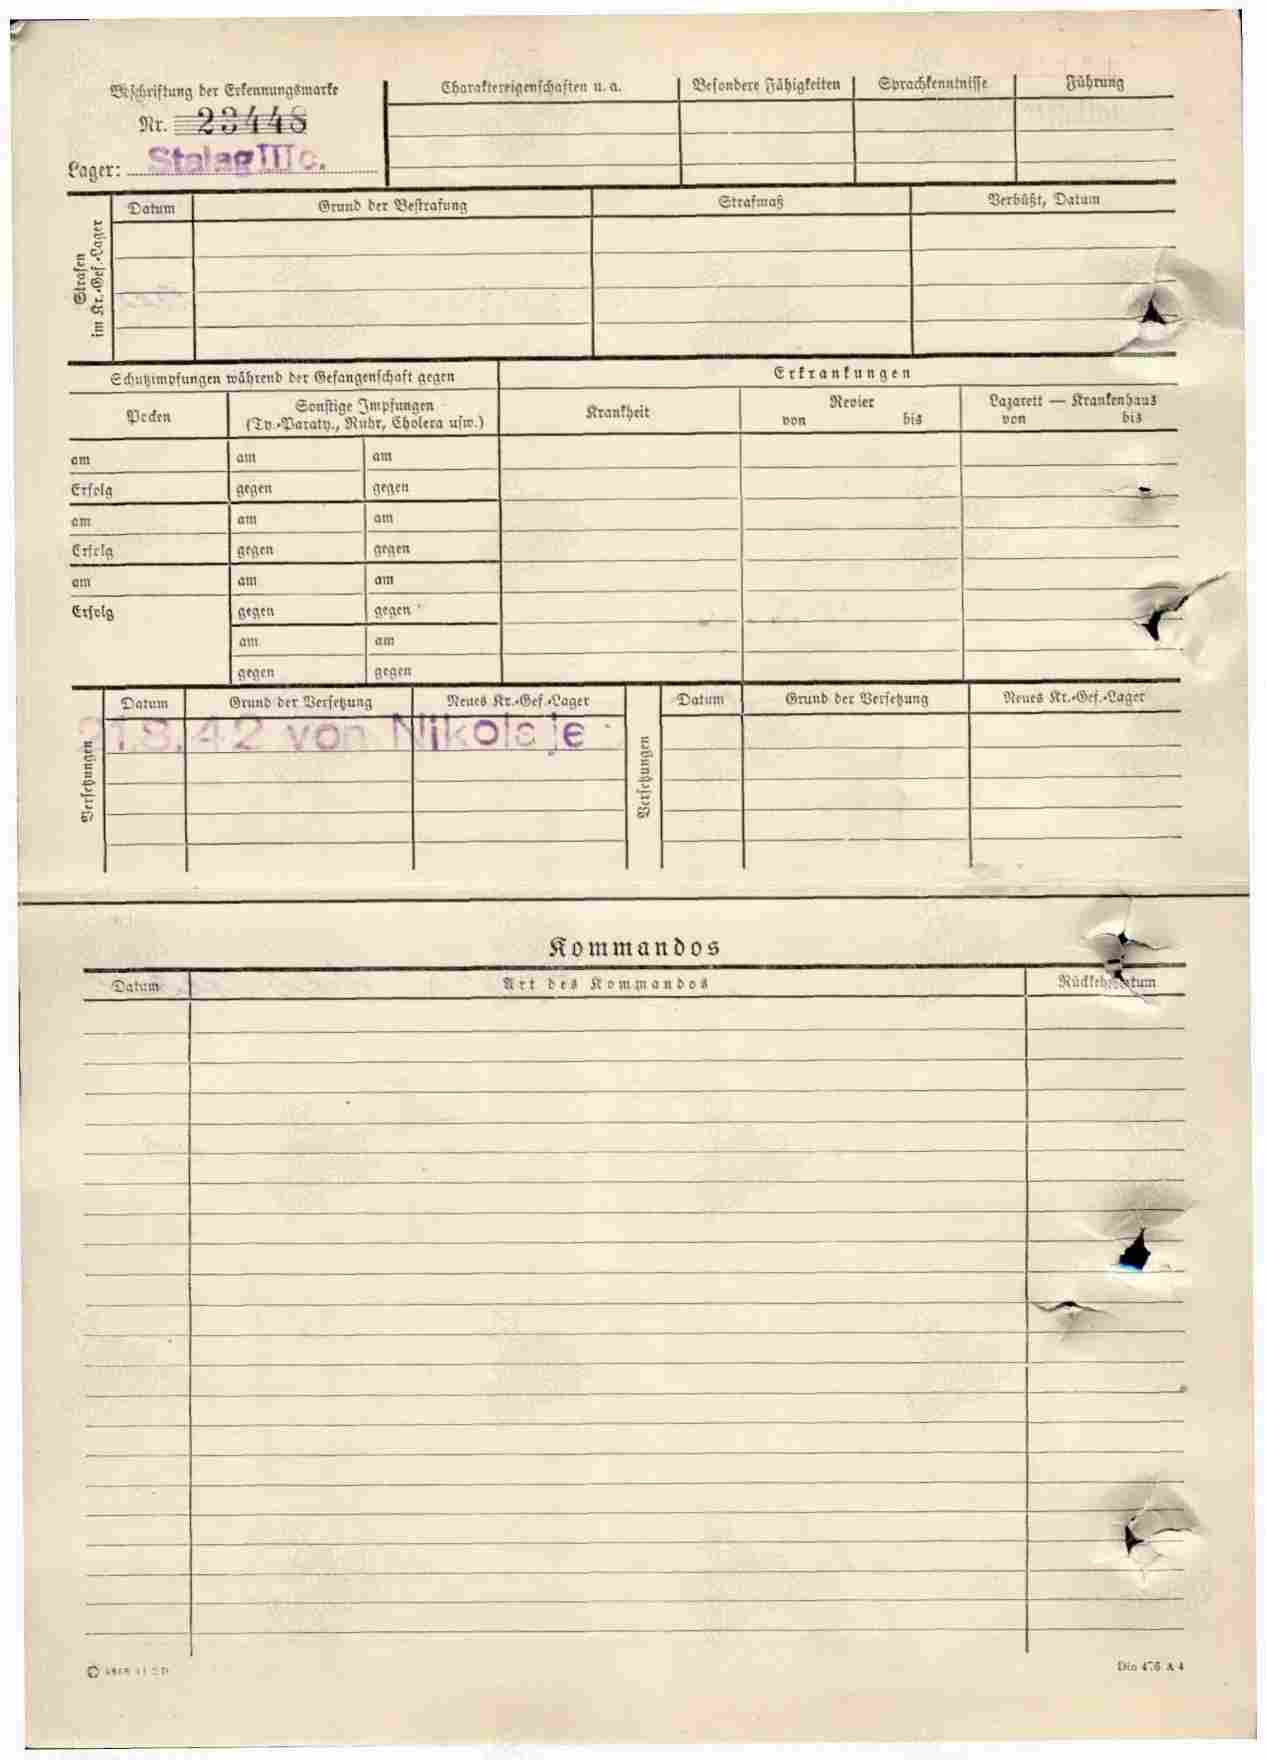 Beschriftung der Erkennungsmarke
Nr. 23448
Lager: Stalag III c.
Charaktereigenschaften u. a.
Besondere Fähigkeiten
Sprachkenntnisse
Führung
Strafen
im Kr.-Gef.-Lager
Datum
Grund der Bestrafung
Strafmaß
Verbüßt, Datum
Schutzimpfungen während der Gefangenschaft gegen
Erkrankungen
Pocken
Sonstige Impfungen
(Ty.-Paraty., Ruhr, Cholera usw.)
Krankheit
Revier
von bis
Lazarett — Krankenhaus
von bis
am am am
Erfolg gegen gegen
am am am
Erfolg gegen gegen
am am am
Erfolg gegen gegen
am am
gegen gegen
Versetzungen
Datum
Grund der Versetzung
Neues Kr.-Gef.-Lager
21.8.42 von Nikolaje
Versetzungen
Datum
Grund der Versetzung
Neues Kr.-Gef.-Lager
Kommandos
Datum
Art des Kommandos
Din 476 A 4